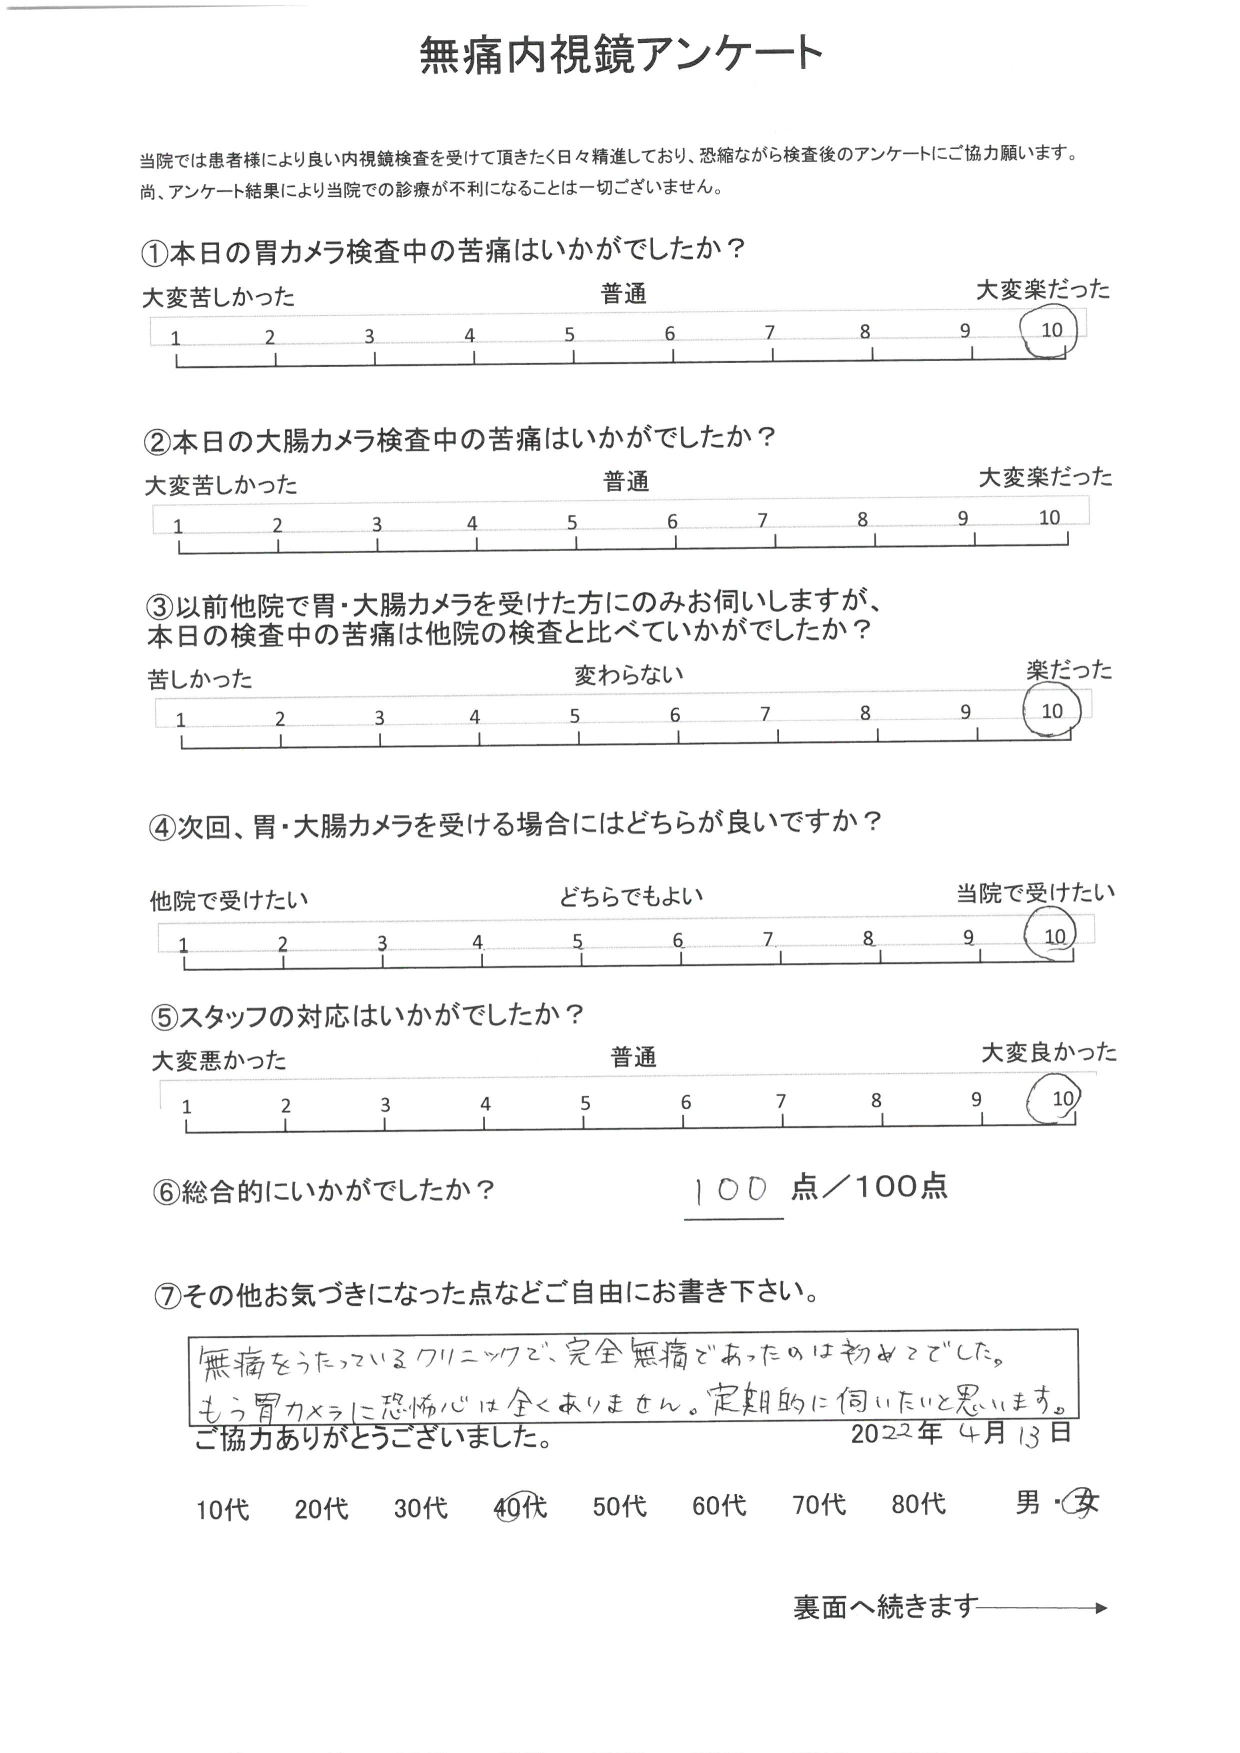 無痛内視鏡アンケート
当院では患者様により良い内視鏡検査を受けて頂きたく日々精進しており、恐縮ながら検査後のアンケートにご協力願います。
尚、アンケート結果により当院での診療が不利になることは一切ございません。
①本日の胃カメラ検査中の苦痛はいかがでしたか？
大変苦しかった 普通 大変楽だった
1 2 3 4 5 6 7 8 9 10
②本日の大腸カメラ検査中の苦痛はいかがでしたか？
大変苦しかった 普通 大変楽だった
1 2 3 4 5 6 7 8 9 10
③以前他院で胃・大腸カメラを受けた方にのみお伺いしますが、
本日の検査中の苦痛は他院の検査と比べていかがでしたか？
苦しかった 変わらない 楽だった
1 2 3 4 5 6 7 8 9 10
④次回、胃・大腸カメラを受ける場合にはどちらが良いですか？
他院で受けたい どちらでもよい 当院で受けたい
1 2 3 4 5 6 7 8 9 10
⑤スタッフの対応はいかがでしたか？
大変悪かった 普通 大変良かった
1 2 3 4 5 6 7 8 9 10
⑥総合的にいかがでしたか？ 100 点／100点
⑦その他お気づきになった点などご自由にお書き下さい。
無痛をうたっているクリニックで、完全無痛であったのは初めてでした。
もう胃カメラに恐怖心は全くありません。定期的に伺いたいと思います。
ご協力ありがとうございました。 2022年 4月 13日
10代 20代 30代 40代 50代 60代 70代 80代 男・女
裏面へ続きます